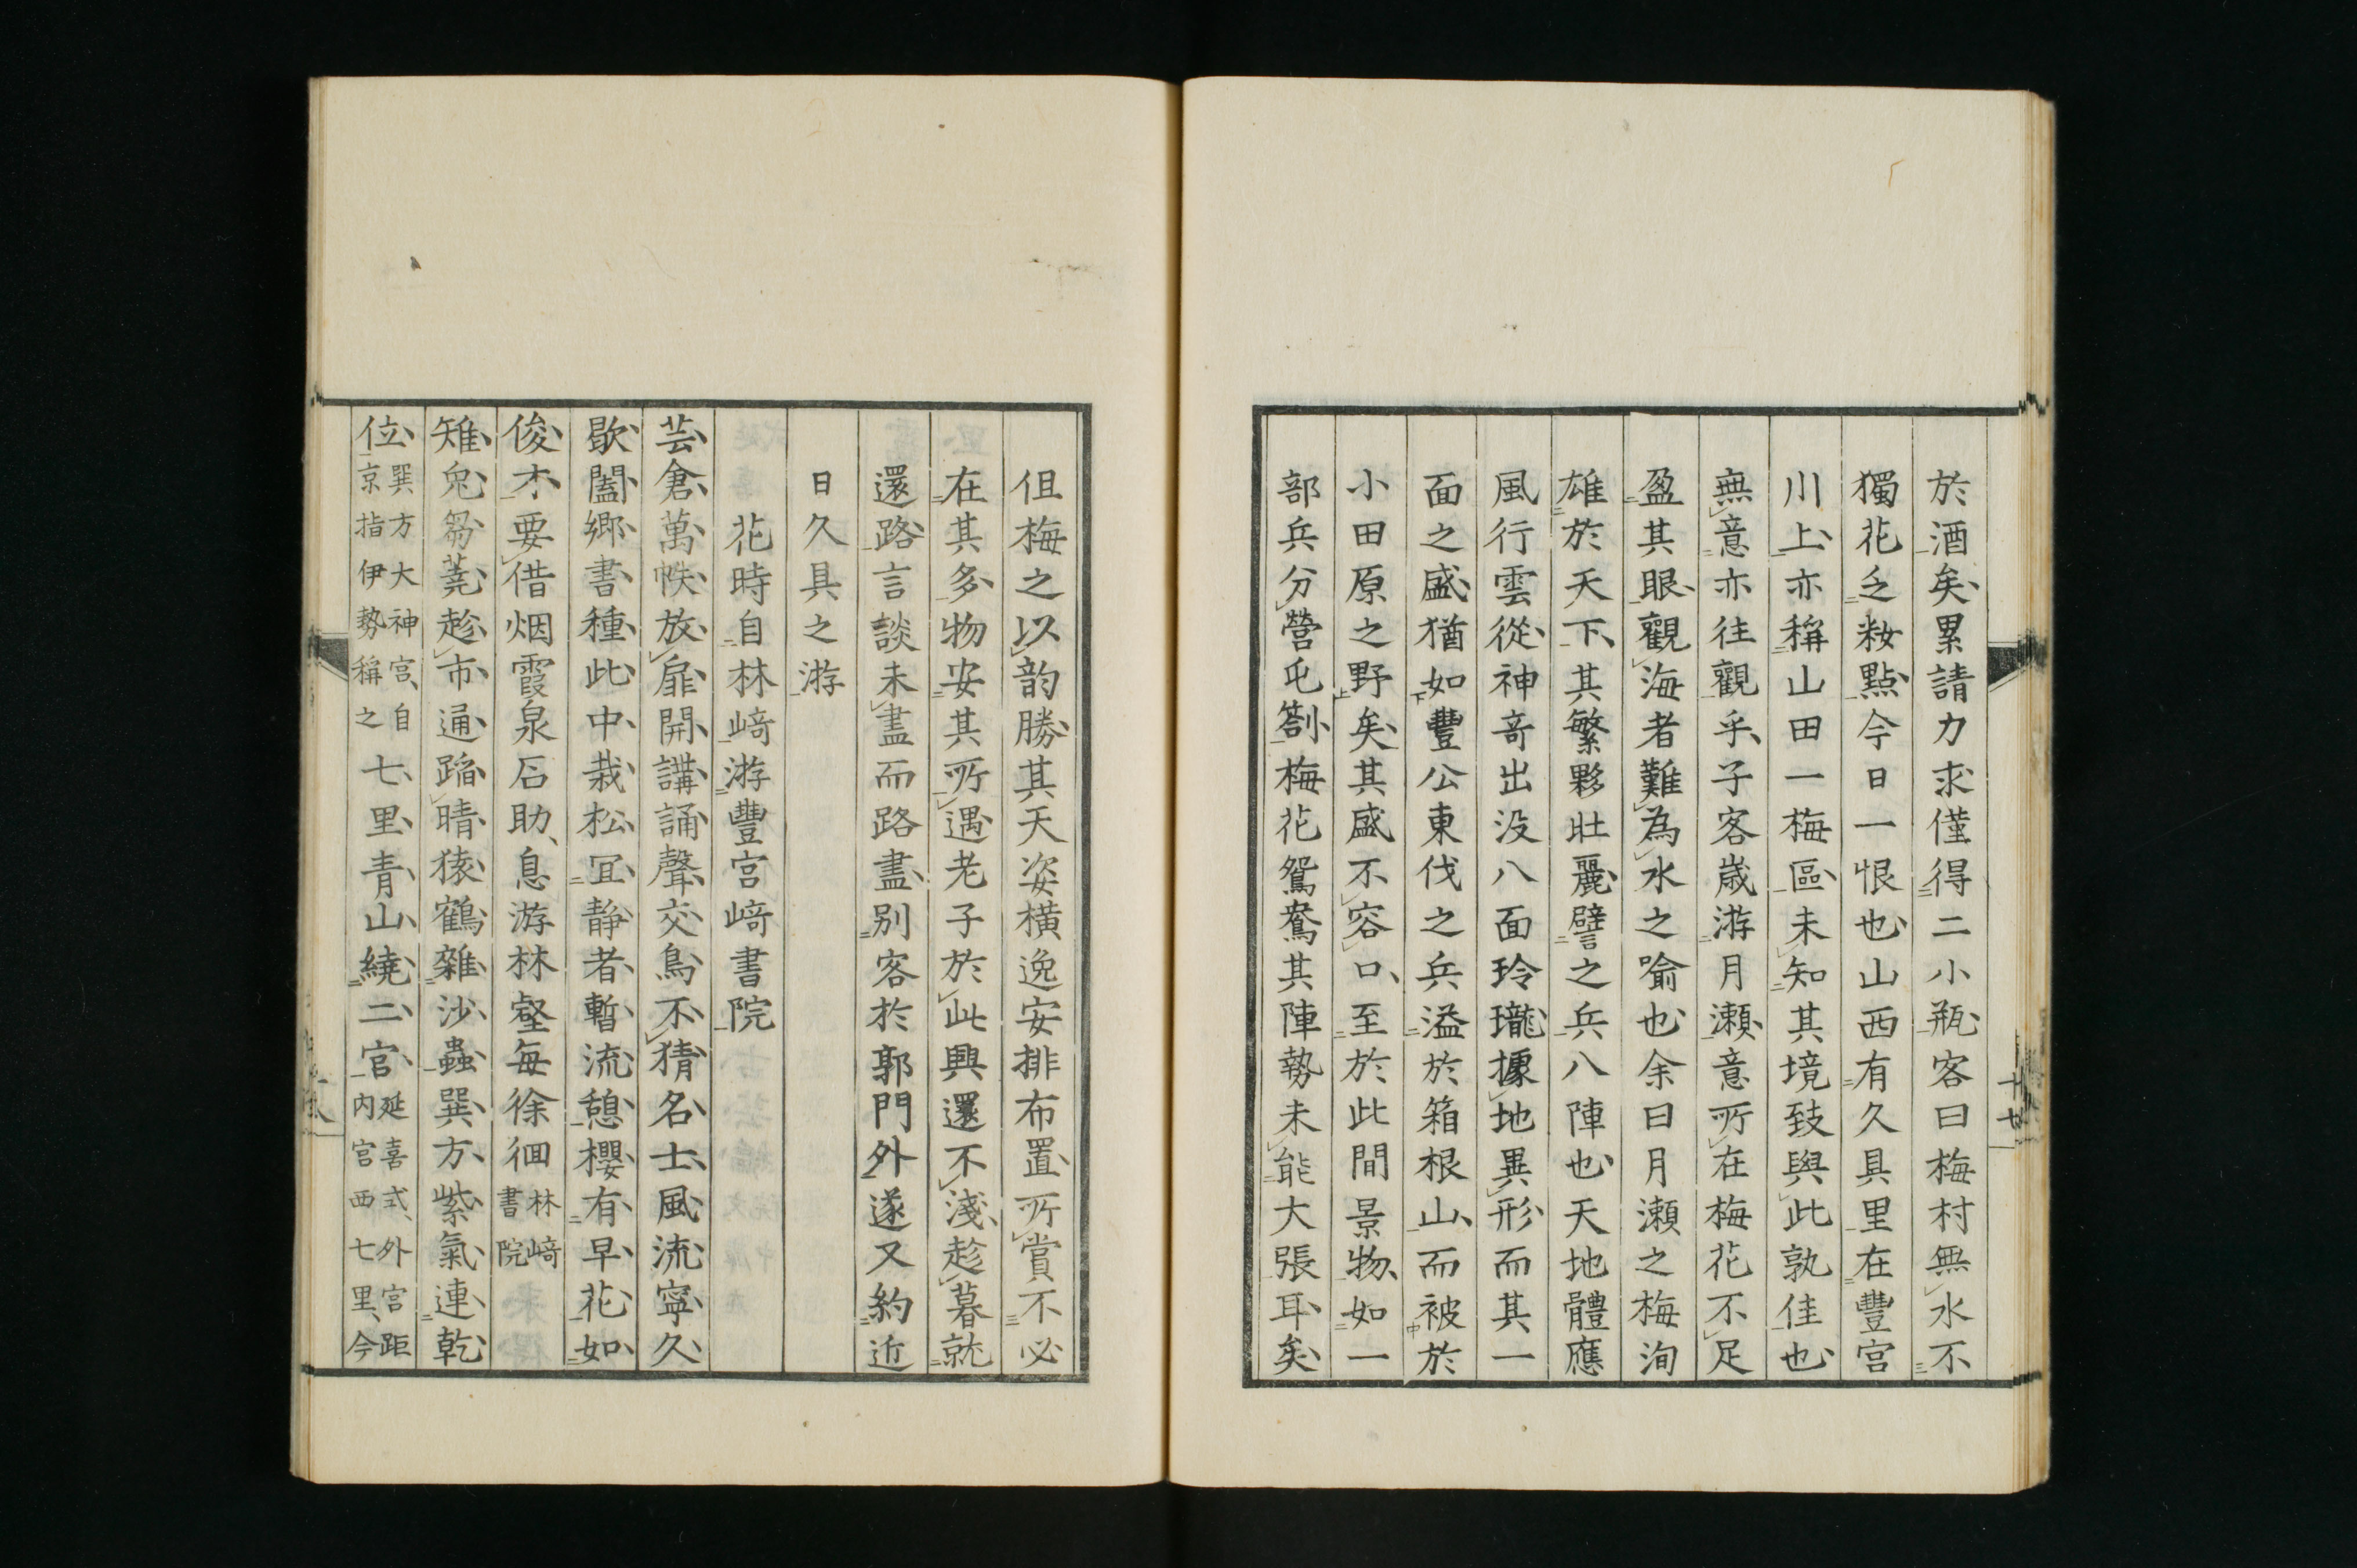 於酒矣累請力求僅得二小瓶客曰梅村無水不
獨花乏粧點今日一恨也山西有久具里在豐宮
川上亦稱山田一梅區未知其境致與此孰佳也
無意亦往觀乎子客歲游月瀨意所在梅花不足
盈其眼觀海者難為水之喻也余曰月瀨之梅洵
雄於天下其繁夥壯麗譬之兵八陣也天地體應
風行雲從神奇出没八面玲瓏據地異形而其一
面之盛猶如豐公東伐之兵溢於箱根山而被於
小田原之野矣其盛不容口至於此間景物如一
部兵分營屯劄梅花鴛鴦其陣勢未能大張耳矣
十七
但梅之以韵勝其天姿橫逸安排布置所賞不必
在其多物安其所遇老子於此興還不淺趁暮就
還路言談未盡而路盡別客於郭門外遂又約近
日久具之游
花時自林﨑游豐宮﨑書院
芸倉萬帙放扉開講誦聲交鳥不猜名士風流寧久
歇闔鄉書種此中栽松冝靜者暫流憩櫻有早花如
俊才要借烟霞泉石助息游林壑每徐徊林﨑書院
雉兔芻蕘趁市通踰晴猿鶴雜沙蟲巽方紫氣連乾
位巽方大神宮自京指伊勢稱之七里青山繞二宮延喜式外宮距内宮西七里今